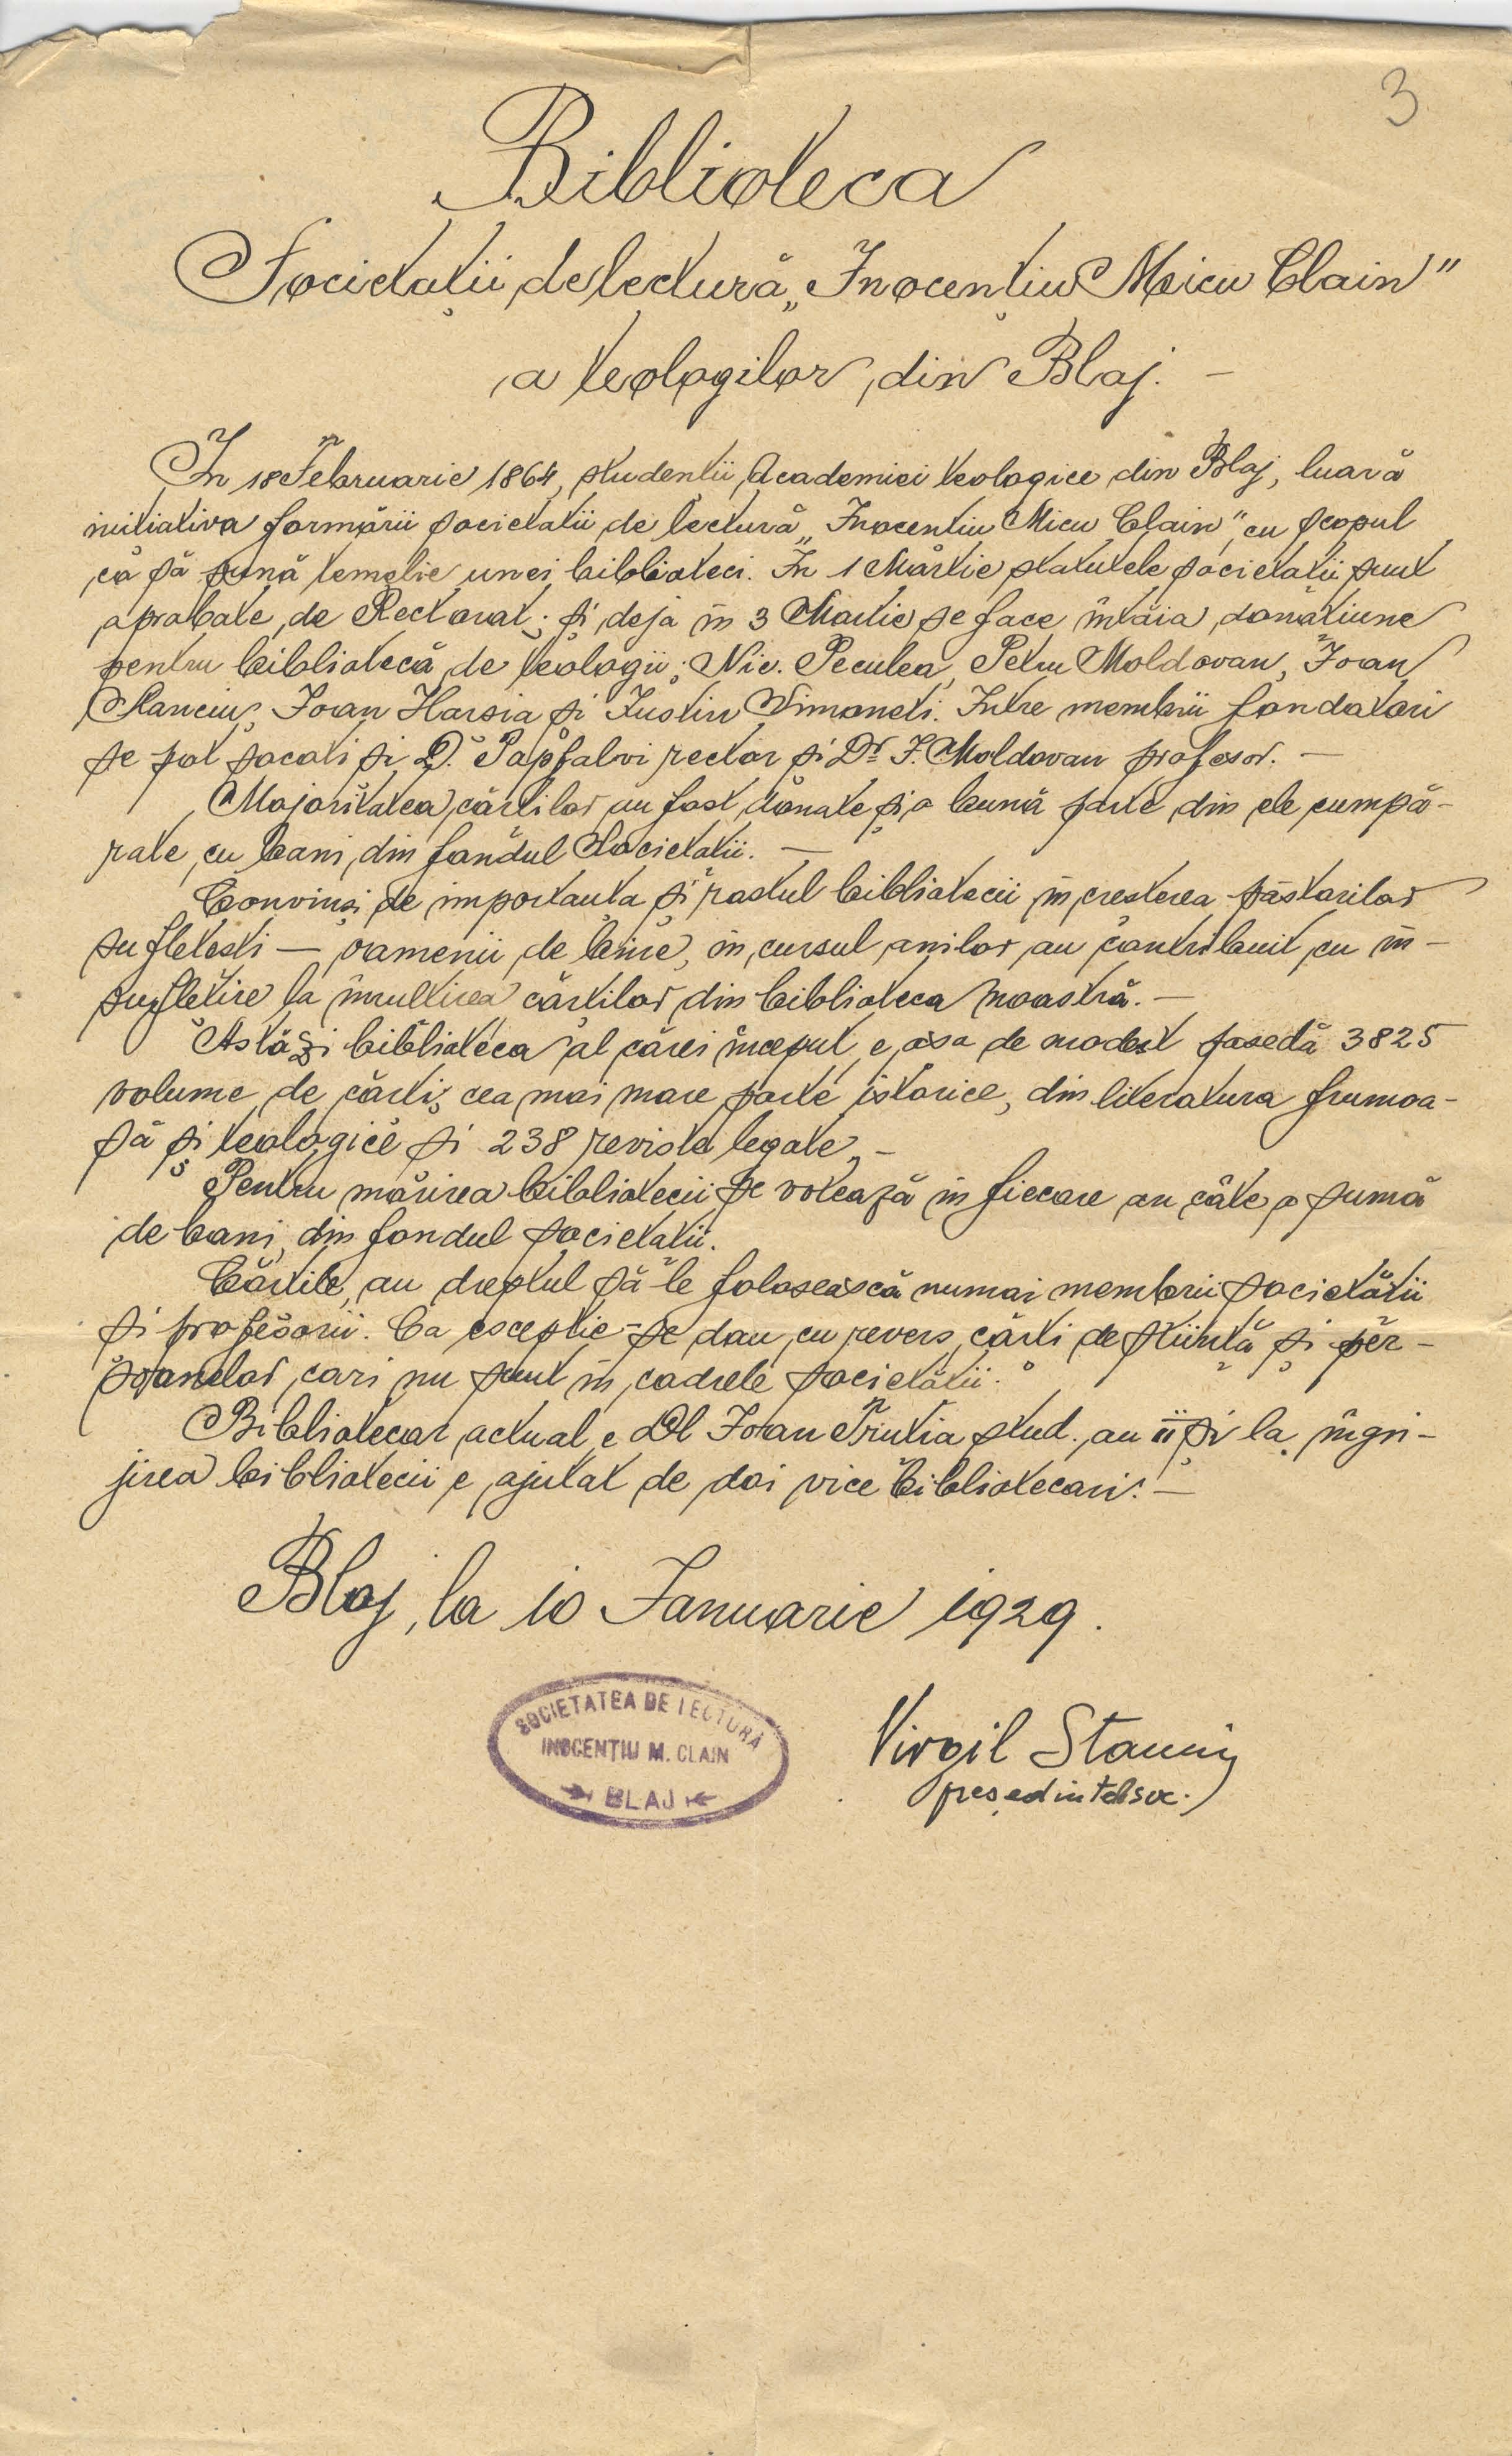 3
Biblioteca
Societații de lectură „Inocențiu Micu Clain"
a teologilor din Blaj. —
In 18 Februarie 1864, studenții Academiei teologice din Blaj, luară
inițiativa formării societății de lectură „Inocentiu Micu Clain", cu scopul
că să pună temelie unei biblioteci. In 1 Martie statutele societății sunt
aprobate de Rectorat; și deja în 3 Martie se face întăia donațiune
pentru bibliotecă de teologii: Nic. Peculea, Petru Moldovan, Ioan
Stanciu, Ioan Harsia și Iustin Simoneti. Intre membrii fondatori
se pot socoti și D. Papfalvi rector și Dr I. Moldovan profesor. —
Majoritatea cărților au fost donate și o bună parte din ele cumpă-
rate cu bani din fondul Societatii. —
Convinși de importanta și rostul bibliotecii în cresterea păstorilor
sufletesti — oamenii de bine, în cursul anilor au contribuit cu în-
sufletire la înmultirea cărtilor din biblioteca noastră. —
Astăzi biblioteca al cărei început e așa de modest posedă 3825
volume de cărti, cea mai mare parte istorice, din literatura frumoa-
să și teologice și 238 reviste legate. —
Pentru mărirea bibliotecii se votează în fiecare an câte o sumă
de bani din fondul societatii.
Cărtile au dreptul să le folosească numai membrii societății
și profesorii. Ca esceptie se dau cu revers cărti de știintă și per-
soanelor cari nu sunt în cadrele societății.
Bibliotecar actual e Dl Ioan Trutia stud. an II și la îngri-
jirea bibliotecii e ajutat de doi vice bibliotecari. —
Blaj, la 10 Ianuarie 1929.
SOCIETATEA DE LECTURĂ
INOCENȚIU M. CLAIN
BLAJ
Virgil Stanciu
președintele soc.